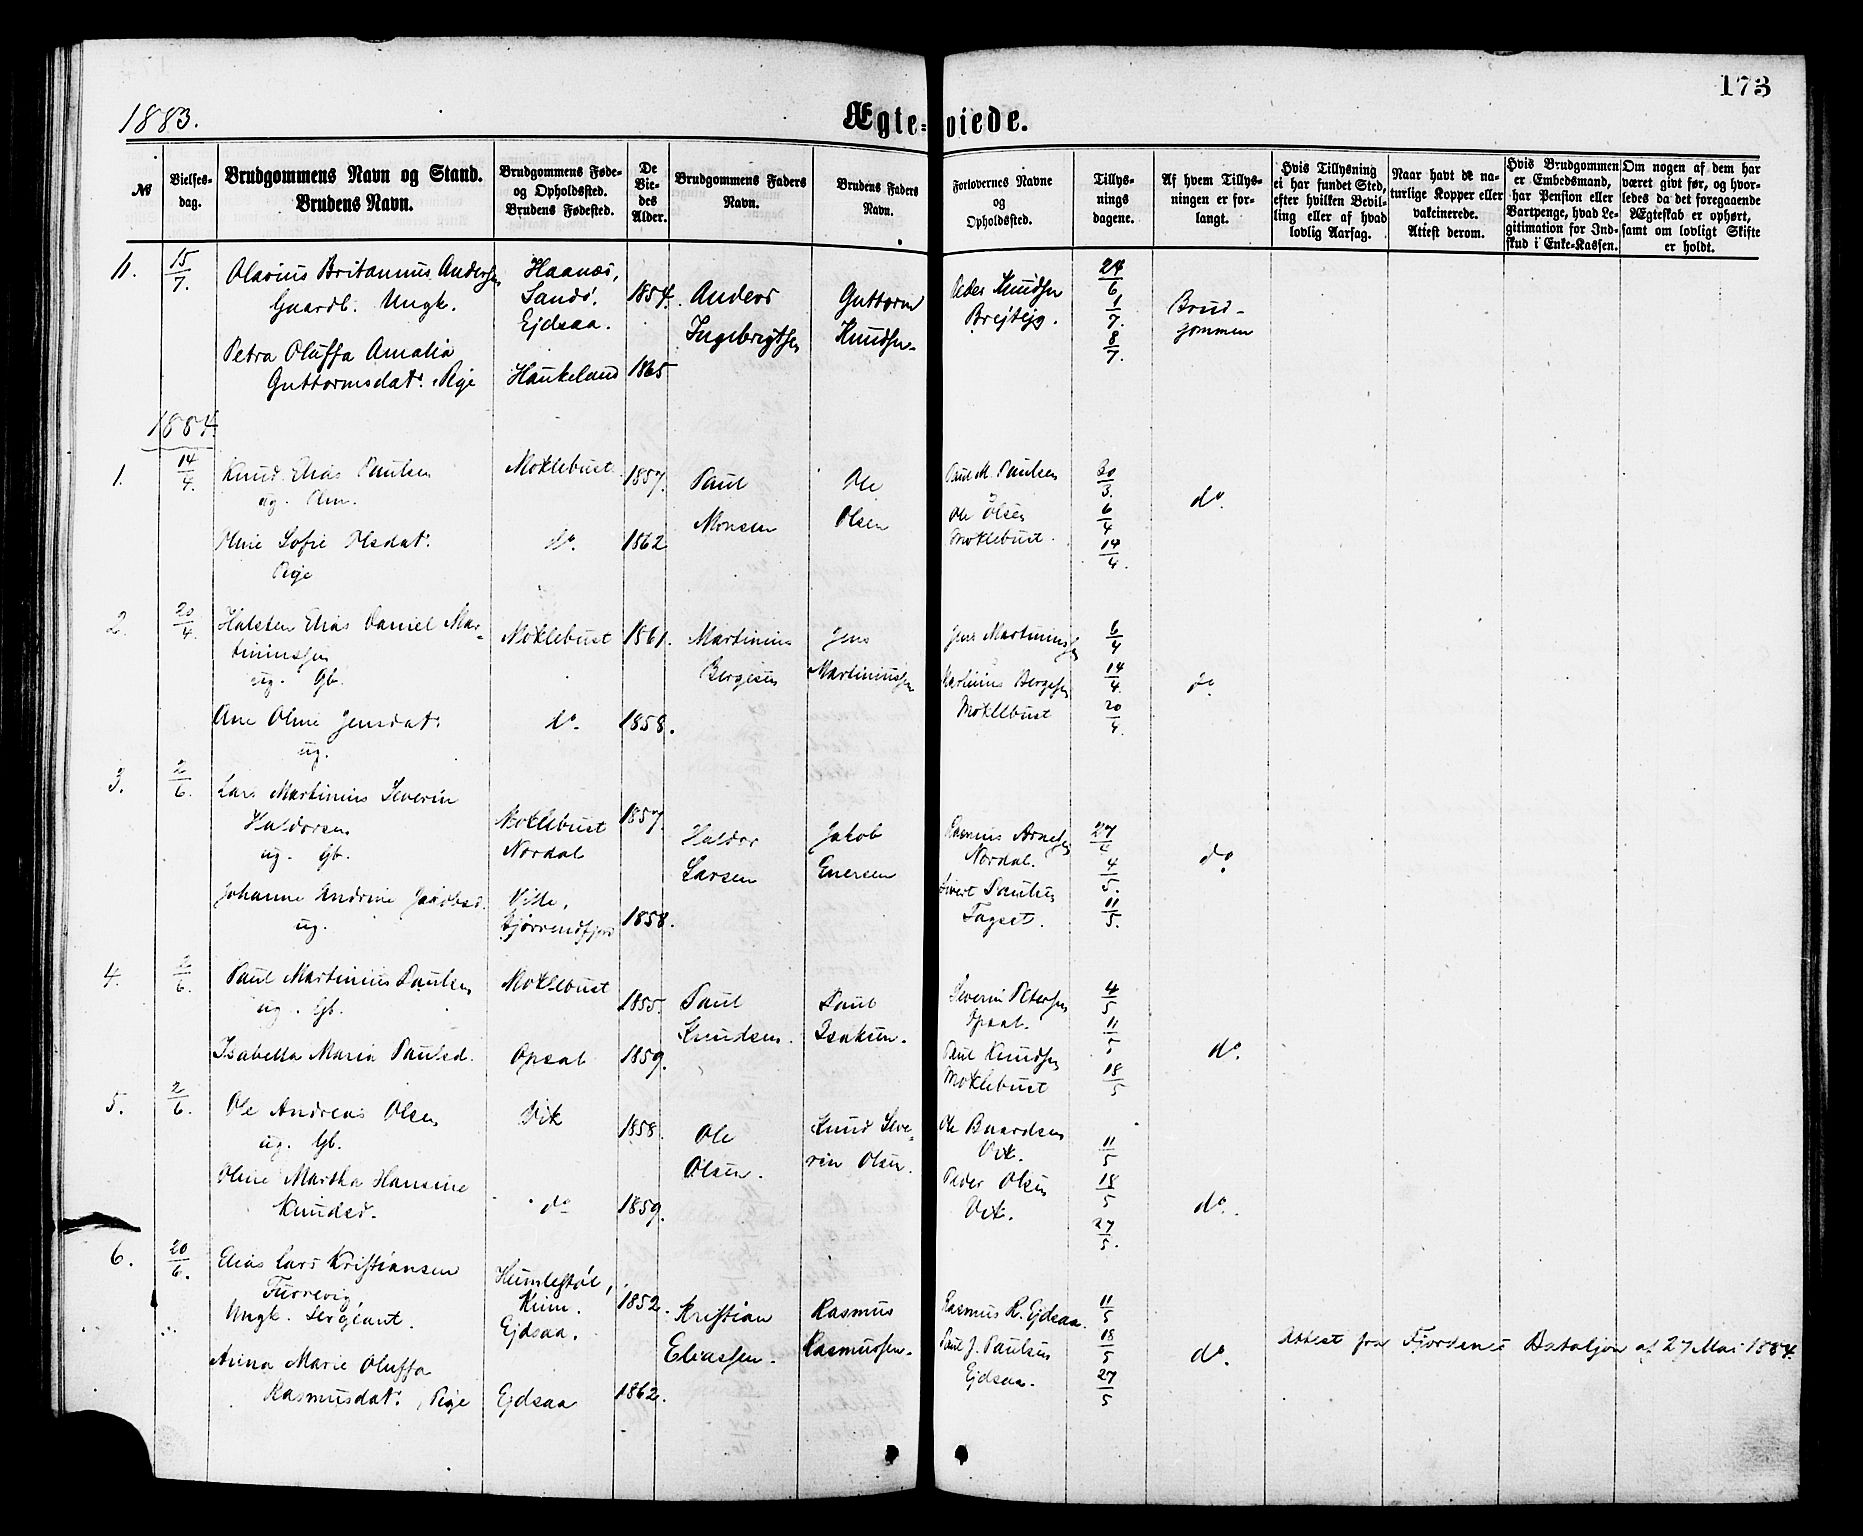 173
1883.
Ægte-viede.
№
Vielses-
dag.
Brudgommens Navn og Stand.
Brudens Navn.
Brudgommens Føde-
og Opholdssted.
Brudens Fødested.
De
Vie-
des
Alder.
Brudgommens Faders
Navn.
Brudens Faders
Navn.
Forlovernes Navne
og
Opholdssted.
Tillys-
nings
dagene.
Af hvem Tillys-
ningen er for-
langt.
Hvis Tillysning
ei har fundet Sted,
efter hvilken Bevil-
ling eller af hvad
lovlig Aarsag.
Naar havt de na-
turlige Kopper eller
vakcinerede.
Attest derom.
Hvis Brudgommen
er Embedsmand,
har Pension eller
Vartpenge, hvad Le-
gitimation for Ind-
skud i Enke-Kassen.
Om nogen af dem har
været givt før, og hvor-
ledes da det foregaaende
Ægteskab er ophørt,
samt om lovligt Skifte
er holdt.
11.
15/7.
Olavius Britannus Andersen
Gaardb. Ungk.
Petra Oluffa Amalia
Guttormsdatr. Pige
Haanæs,
Sandø.
Ejdsaa.
Haukeland
1854.
1865
Anders
Ingebrigtsen
Guttorm
Knudsen
Peder Knudsen
Brejtejg.
24/6
1/7.
8/7.
Brud-
gommen
1884.
1.
14/4.
Knud Elias Paulsen
ug. Am.
Oline Sofie Olsdatr.
Pige
Moklebust
do.
1857.
1862
Paul
Monsen
Ole
Olsen
Paul M. Paulsen
Ole Olsen
Moklebust.
30/3.
6/4
14/4.
do.
2.
20/4.
Halsten Elias Daniel Mar-
tinussen
ug. Gb.
Ane Oline Jensdatr.
ug.
Moklebust
do.
1861.
1858.
Martinius
Bergesen
Jens
Martinussen
Jens Martinussen
Martinius Bergesen
Moklebust
6/4
14/4.
20/4.
do.
3.
2/6.
Lars Martinius Severin
Haldorsen
ug. Gb.
Johanne Andrine Jakobsd.
ug.
Moklebust
Nordal
Ville,
Bjørrendfjord
1857.
1858.
Haldor
Larsen
Jakob
Enersen
Rasmus Arnesen
Nordal.
Sivert Paulsen
Fagset.
27/4
4/5.
11/5.
do.
4.
2/6.
Paul Martinius Paulsen
ug. Gb.
Isabella Maria Paulsd.
Moklebust
Opsal
1855.
1859.
Paul
Knudsen.
Paul
Isaksen.
Severin Petersen
Opsal.
Paul Knudsen
Moklebust
4/5
11/5
18/5
do.
5.
2/6.
Ole Andreas Olsen
ug. Gb.
Oline Martha Hansine
Knudsd.
Vik
do
1858.
1859.
Ole
Olsen.
Knud Seve-
rin Olsen.
Ole Baardsen
Vik.
Peder Olsen
Vik.
11/5
18/5
27/5.
do.
6.
20/6.
Elias Lars Kristiansen
Furrevig
Ungk. Sergeant.
Anna Marie Oluffa
Rasmusdatr. Pige
Humlestøl,
Kinn.
Ejdsaa.
Ejdsaa
1852.
1862.
Kristian
Eliassen.
Rasmus
Rasmussen.
Rasmus R. Ejdsaa.
Paul J. Paulsen
Ejdsaa.
11/5
18/5
27/5
do.
Attest fra Fjordenes Bataljon af 27 Mai 1884.